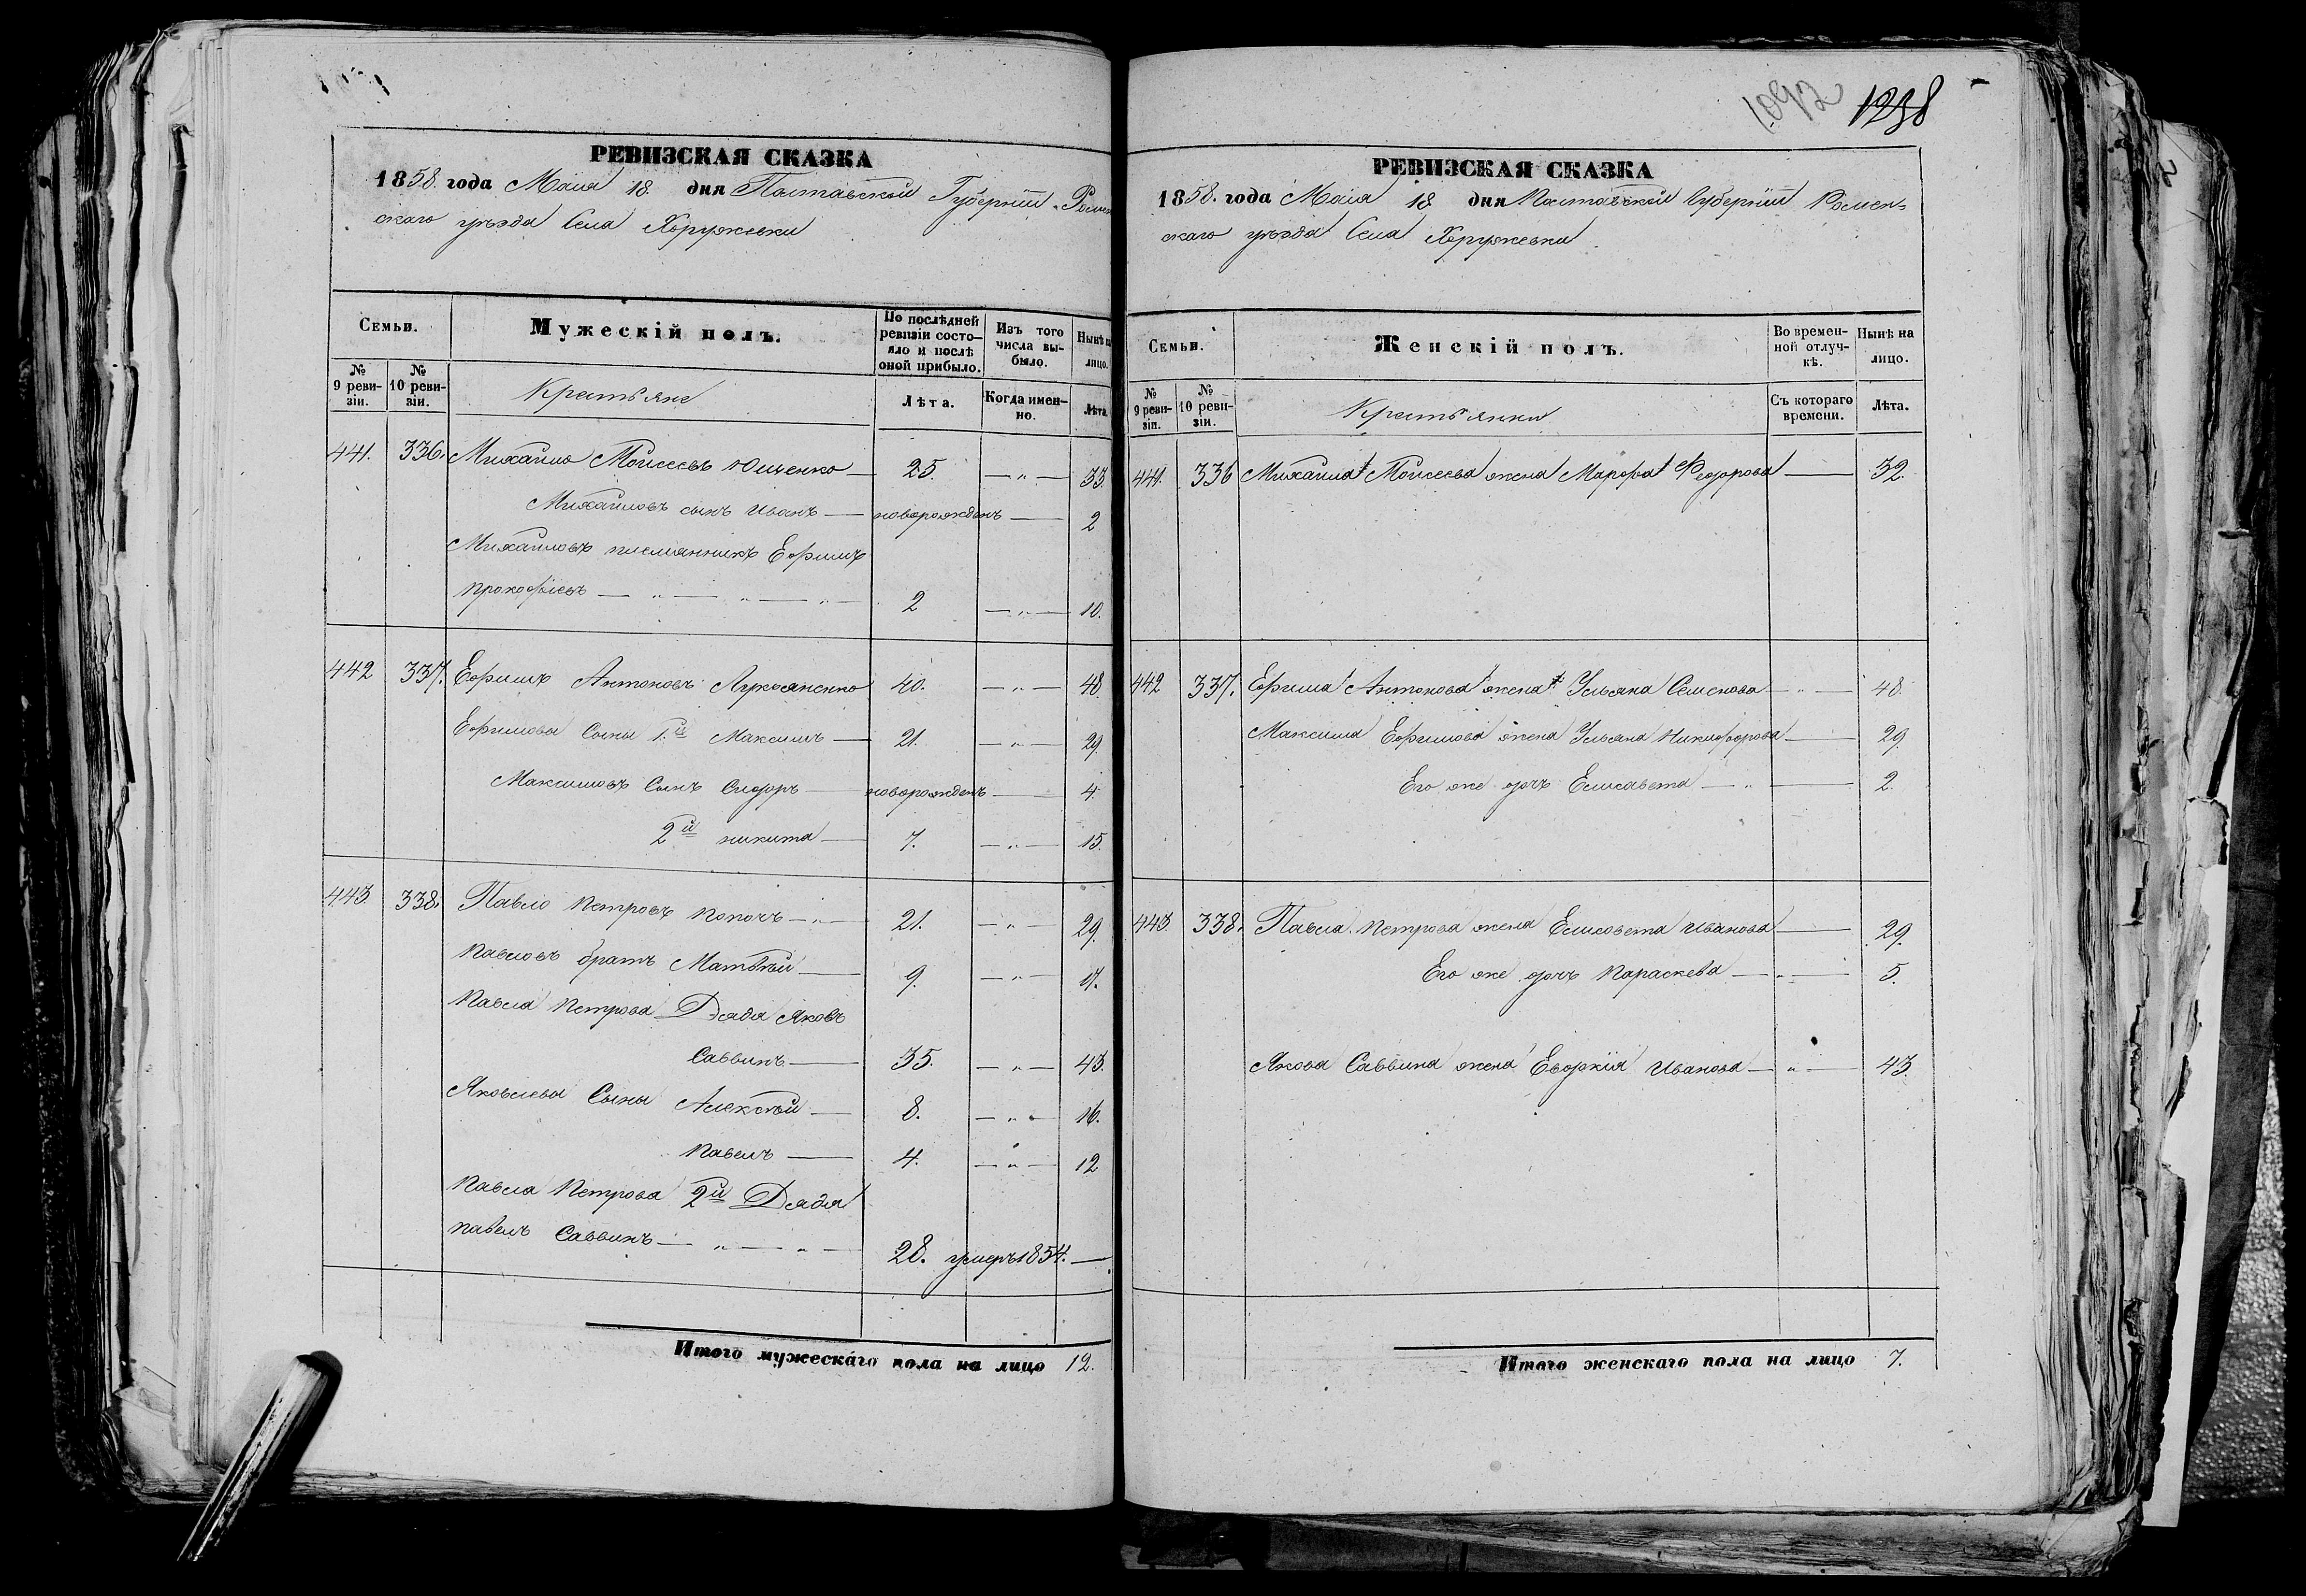 РЕВИЗСКАЯ СКАЗКА
1858. года Маія 18 дня Полтавской Губерніи Ромен
скаго уѣзда Села Хоружевки
Семьи.
Мужескій полъ.
По послѣдней ревизіи состояло и послѣ оной прибыло.
Изъ того числа выбыло.
Нынѣ на лицо.
№ 9 ревизіи.
№ 10 ревизіи.
Крестьяне
Лѣта.
Когда именно.
Лѣта.
441. 336. Михайло Моисеевъ Ющенко — 25. — „ — 33.
Михайловъ сынъ Иванъ — новорожденъ — 2
Михайловъ племянникъ Ефимъ
Прокофіевъ — „ — „ — „ — 2 — „ — 10.
442 337. Ефимъ Антоновъ Лукьяненко 40. — „ — 48.
Ефимовы Сыны 1.й Максимъ — 21. — „ — 29.
Максимовъ Сынъ Сидоръ — новорожденъ — 4.
2й никита — 7. — „ — 15.
443. 338. Павло Петровъ Попъ — „ — 21. — „ — 29.
Павловъ братъ Матвѣй — 9. — „ — 17.
Павла Петрова Дядя Яковъ
Саввинъ — 35. — „ — 43.
Яковлевы Сыны Алексѣй — 8. — „ — 16.
Павелъ — 4. — „ — 12
Павла Петрова 2й Дядя
павелъ Саввинъ — „ — „ — 28. умеръ 1854. —
Итого мужескаго пола на лицо 12.
1092 1238
РЕВИЗСКАЯ СКАЗКА
1858. года Маія 18 дня Полтавской Губерніи Ромен-
скаго уѣзда Села Хоружевки.
Семьи.
Женскій полъ.
Во временной отлучкѣ.
Нынѣ на лицо.
№ 9 ревизіи.
№ 10 ревизіи.
Крестьянки
Съ котораго времени.
Лѣта.
441. 336 Михайла Моисеева жена Марфа Федорова — 32.
442 337. Ефима Антонова жена Ульяна Семенова — „ — 48.
Максима Ефимова жена Ульяна Никифорова — 29.
Его же дочь Елисавета — „ — 2.
443. 338. Павла Петрова жена Елисавета Иванова — 29.
Его же дочь Параскева — „ — 5.
Якова Саввина жена Евдокія Иванова — „ — 43.
Итого женскаго пола на лицо 7.